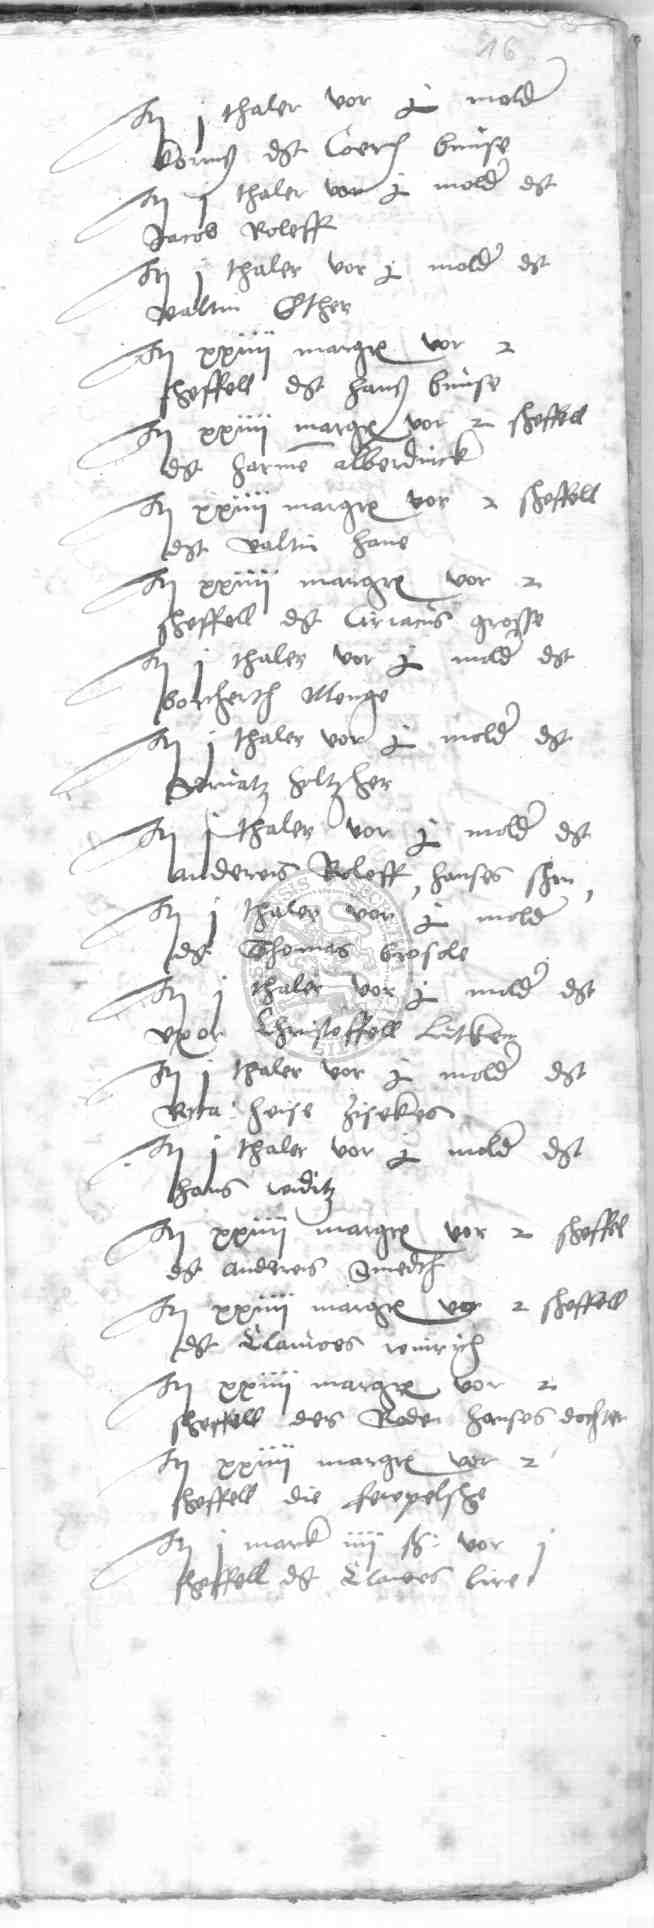 16
It j thaler vor j mold
korns dt Coerth buse
It j thaler vor j mold dt
Jacob Roleff
It j thaler vor j mold dt
Valtin
It xxiiii margr vor 2
sheffell dt hans buse
It xxiiii margr vor 2 sheffell
dt harme alberdinck
It xxiiii margr vor 2 sheffell
dt valtin hane
It xxiiii margr vor 2
sheffell dt Ciriacus grosse
It j thaler vor j mold dt
borcherth Menge
It j thaler vor j mold dt
Servatz holtzher
It j thaler vor j mold dt
anderews Roleff, hanses
It j thaler vor j mold
dt Thomas broscke
It j thaler vor j mold dt
uxor Christoffell Litken
It j thaler vor j mold dt
heise
It j thaler vor j mold dt
hans widitz
It xxiiii margr vor 2 sheffel
dt anderews Smedth
It xxiiii margr vor 2 sheffell
dt Clawes winrich
It xxiiii margr vor 2
sheffell des Roden hanses dochter
It xxiiii margr vor 2
sheffell die
It j mark iiii sh vor j
sheffell dt Clawes